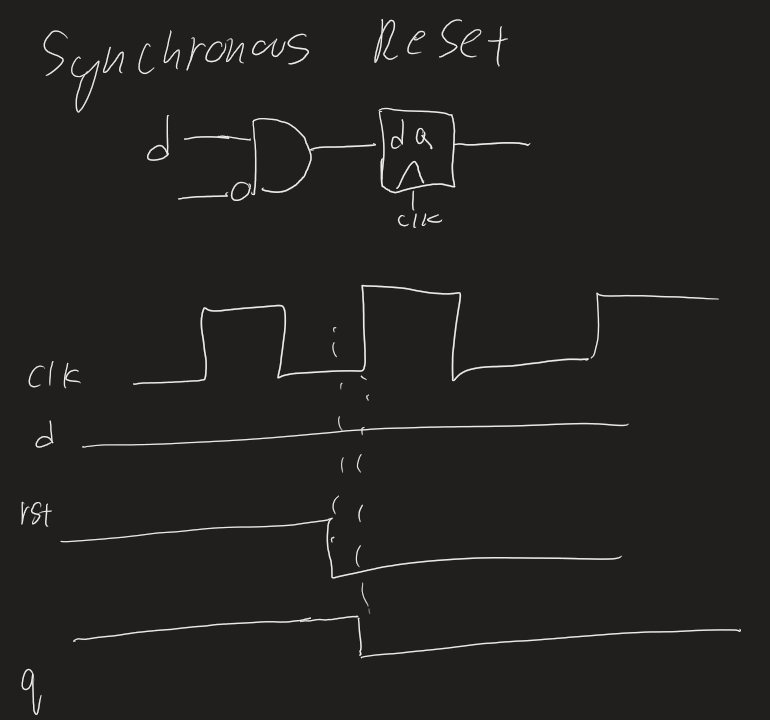 Synchronous Reset
d
d Q
clk
clk
d
rst
q